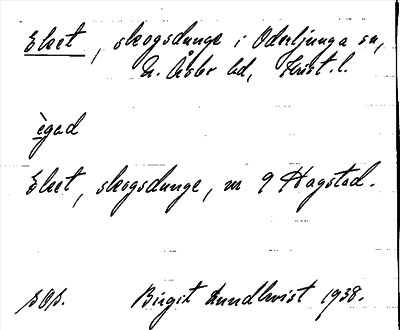 Eket, skogsdunge i Oderljunga sn,
N. Åsbo hd, Krist. l.
ègad
Eket, skogsdunge, nr 9 Hagstad.
Birgit Lundkvist 1938.